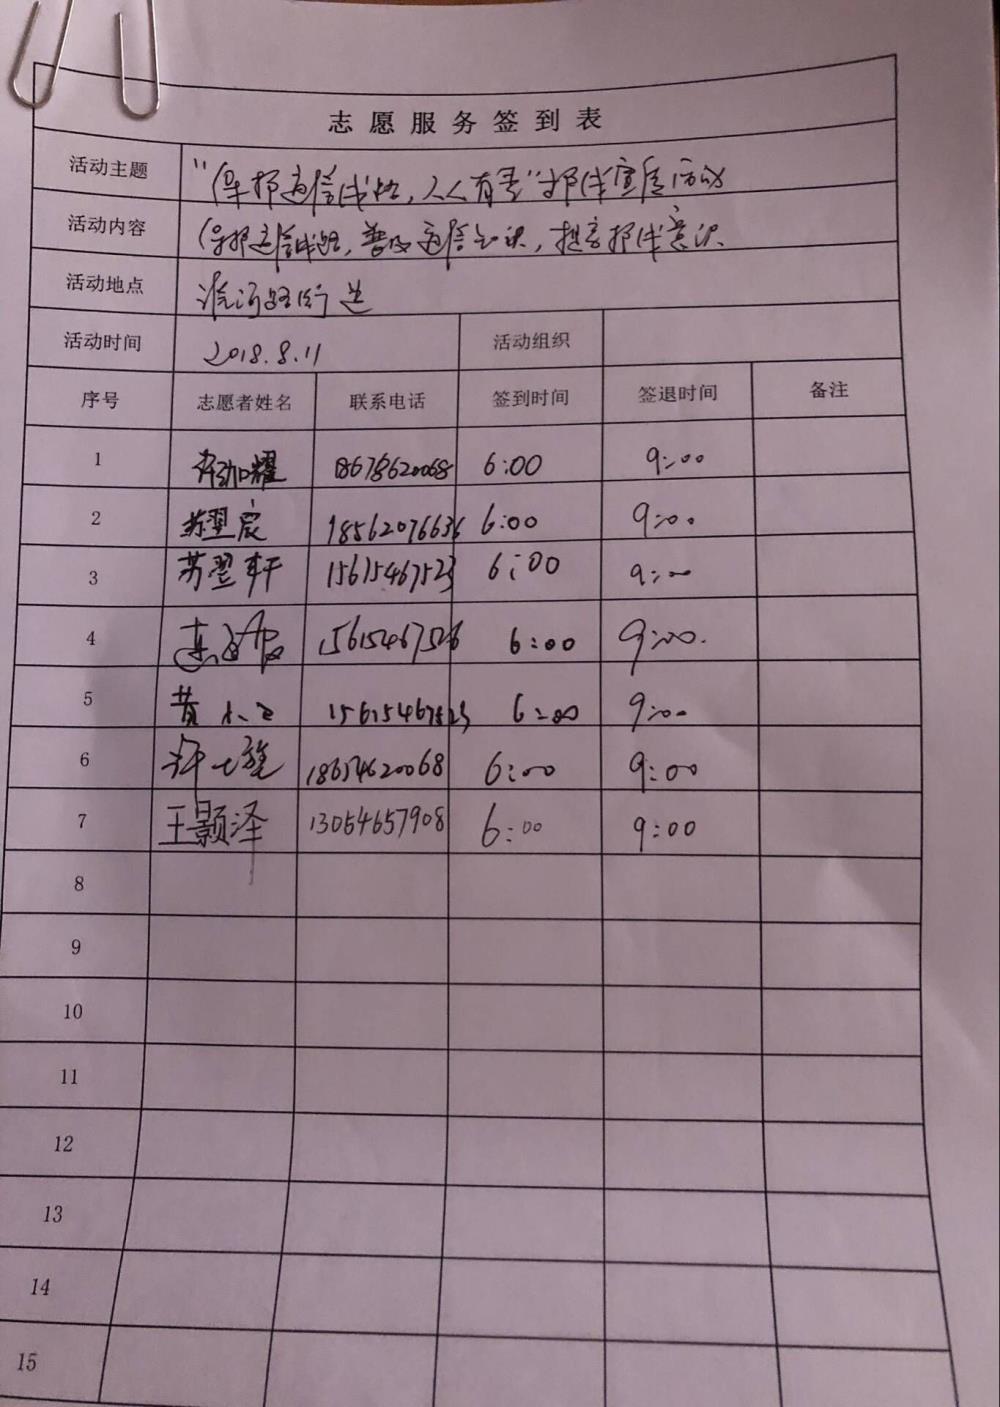 志愿服务签到表
活动主题 "保护通信线路，人人有责"护线宣传活动
活动内容 保护通信线路，普及通信知识，提高护线意识
活动地点 淮河路街道
活动时间 2018.8.11 活动组织
序号 志愿者姓名 联系电话 签到时间 签退时间 备注
1 许加耀 6:00 9:00
2 苏翌宸 18562076636 6:00 9:00
3 苏翌轩 15615467523 6:00 9:00
4 15615467526 6:00 9:00.
5 黄 15615467523 6:00 9:00
6 许 18654620068 6:00 9:00
7 王颢泽 13054657908 6:00 9:00
8
9
10
11
12
13
14
15